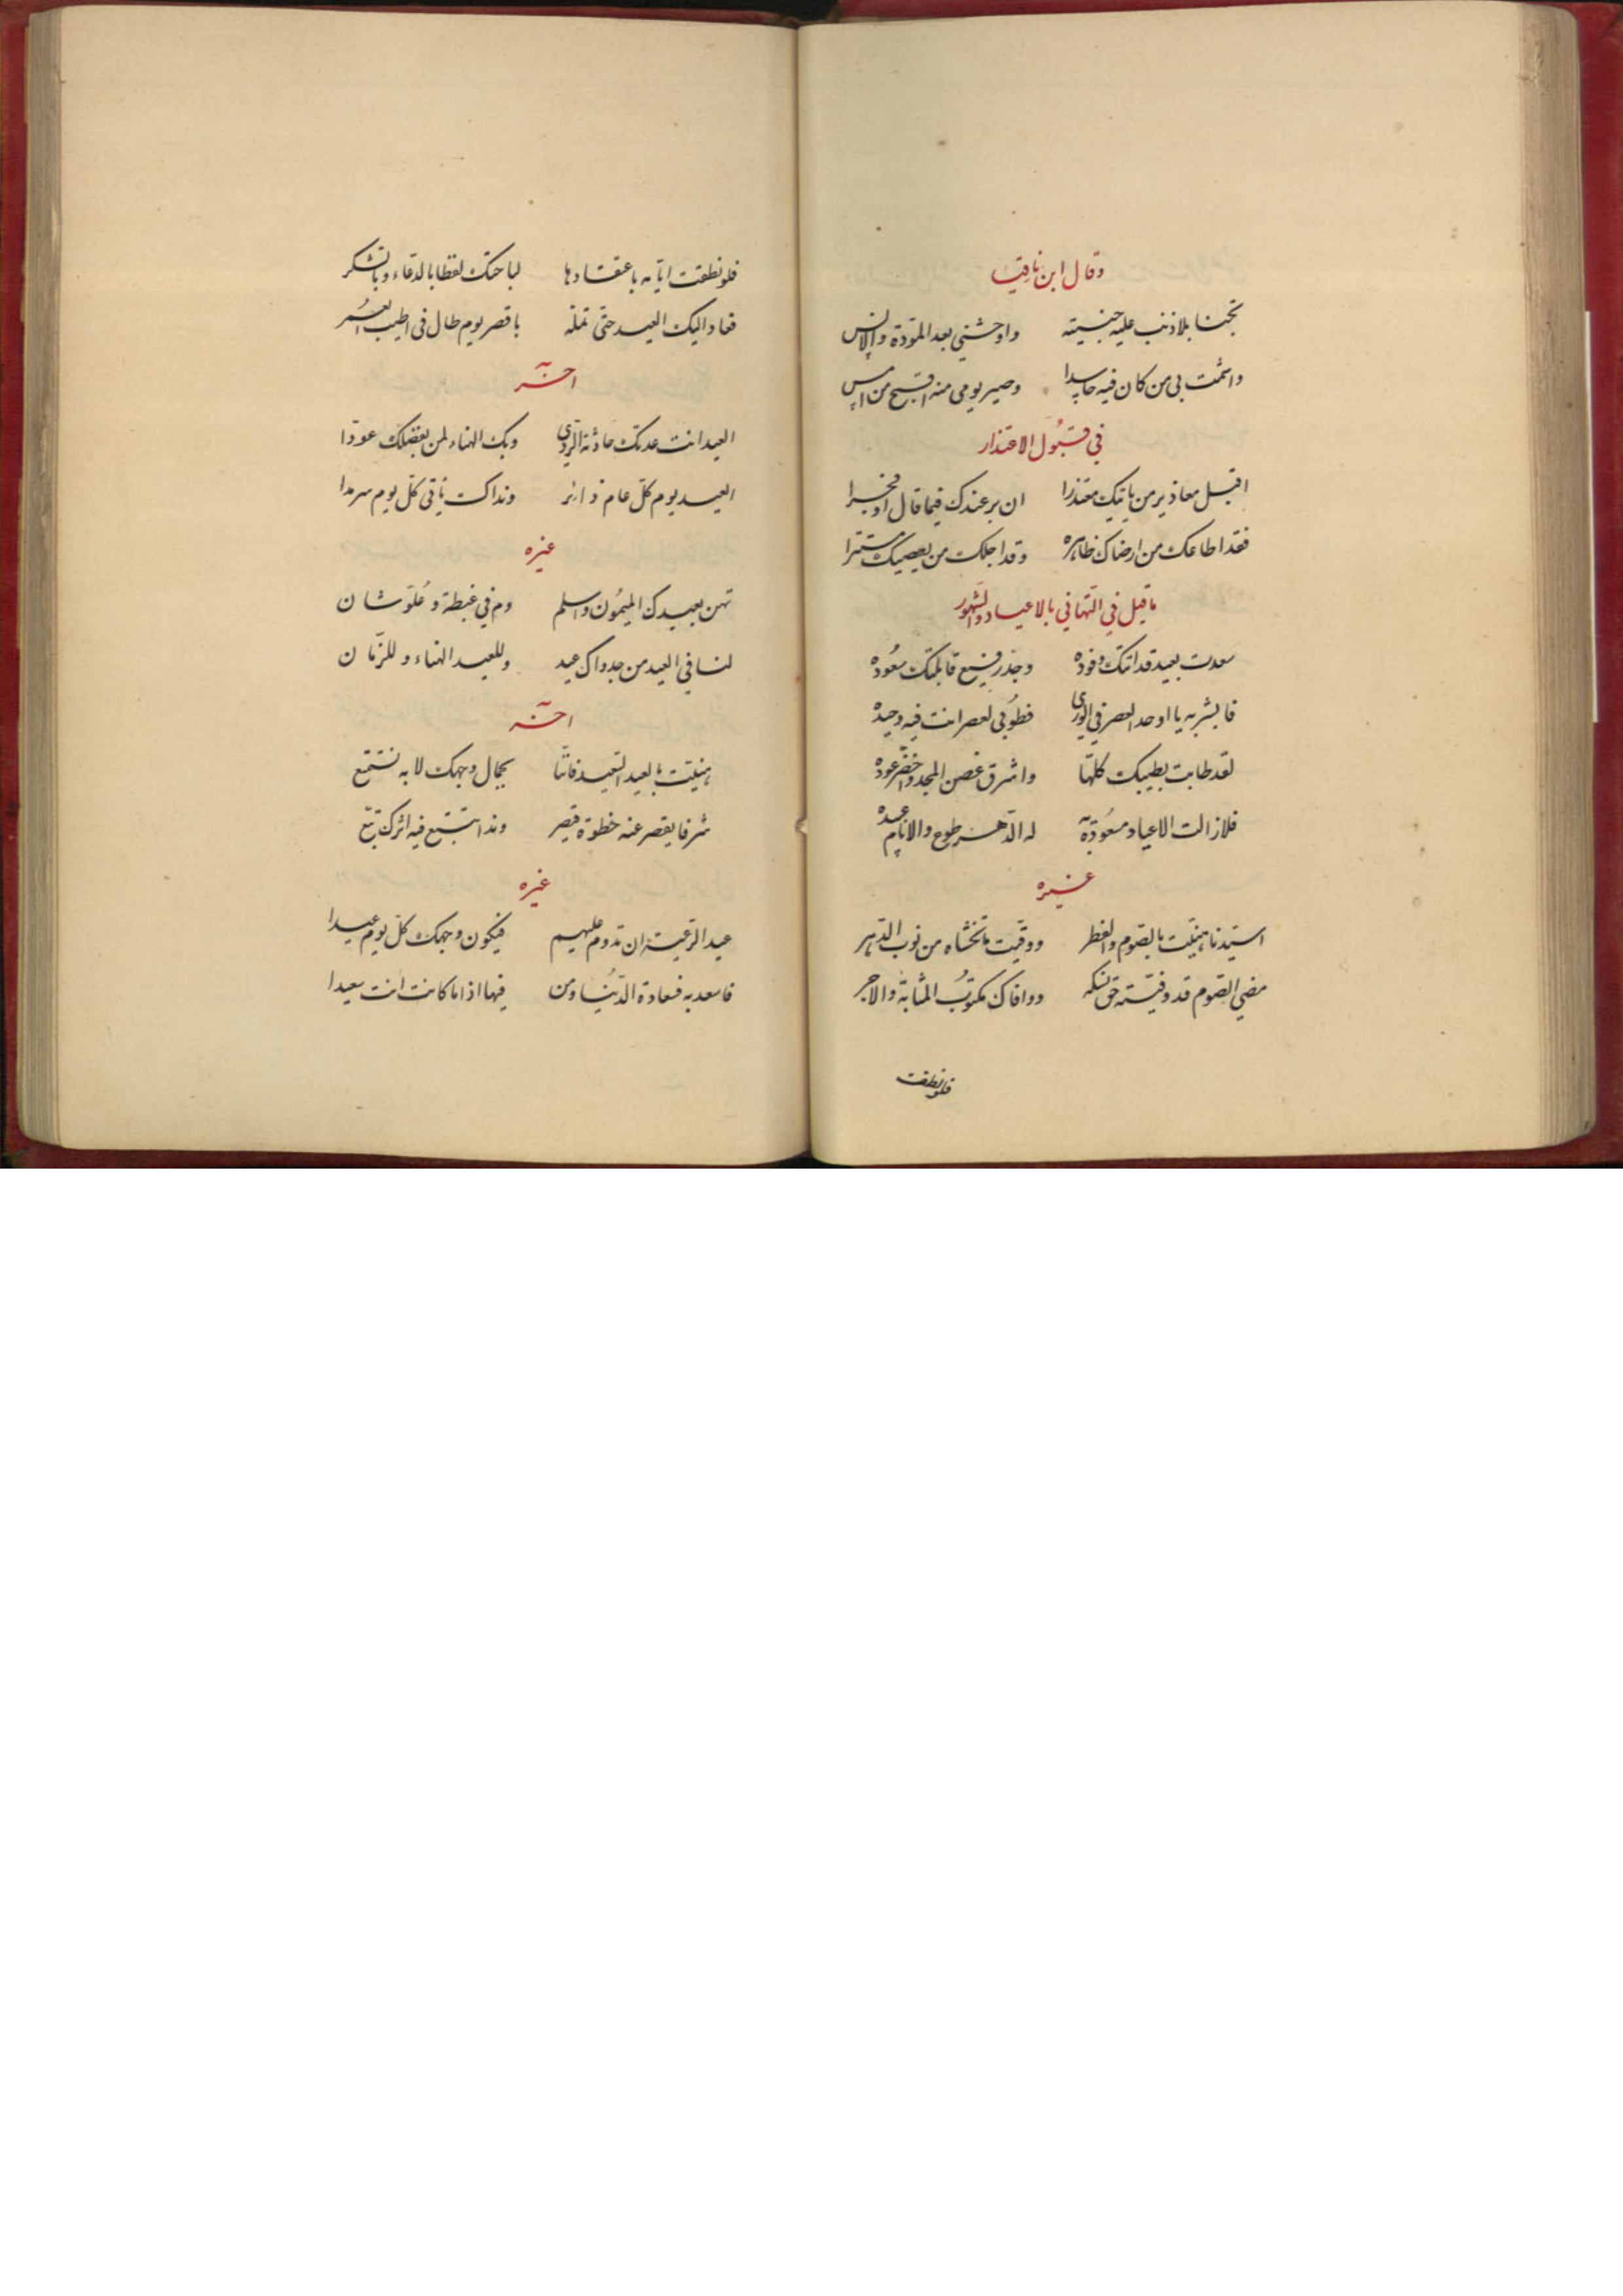 وقال ابن ناقيا
تجنا بلا ذنب عليه جنيته واوحشني بعد المودة والانس
واشمت بي من كان فيه حاسدا وصير يومي منه اقبح من امس
في قبُول الاعتذار
اقبل معاذير من ياتيك معتذرا ان بر عندك فيما قال او فجرا
فقد اطاعك من ارضاك ظاهره وقد اجلك من يعصيك مستترا
ما قيل في التهاني بالاعياد والشهور
سعدت بعيد قد اتتك وفوده وجدر فيع قابلتك سعُوده
فابشر به يا اوحد العصر في الورى فطوُبى لعصر انت فيه وحيده
لقد طابت بطيبك كلها واشرق غصن المجد واخضر عوده
فلا زالت الاعياد مسعُودة له الدهر طوع والانام عبيده
غيره
اسيدنا هنيت بالصوم والفطر ووقيت ما تخشاه من نوب الدهر
مضى الصوم قد وفيته حق نسكه ووافاك مكتوبُ المثابة والاجر
فلو نطقت
فلو نطقت ايامه باعتقادها لباحتك لفظا بالدعاء وبالشكر
فعاد اليك العيد حتى تمله باقصر يوم طال في اطيب العُمر
اخر
العيد انت عدتك حادثة الردى وبك الهناء لمن بفضلك عودا
العيد يوم كل عام زائر ونداك يأتي كل يوم سرمدا
غيره
تهن بعيدك الميمُون واسلم ودم في غبطة وعُلو شان
لنا في العيد من جدواك عيد وللعيد الهناء وللزمان
اخر
هنيت بالعيد السعيد فاننا بجمال وجهك لا به نستمتع
شرفا يقصر عنه خطوة قيصر وندا يتبع فيه اثرك تبع
غيره
عيد الرعية ان تدوم عليهم فيكون وجهك كل يوم عيدا
فاسعد به فسعادة الدنيُا ومن فيها اذا ما كانت انت سعيدا